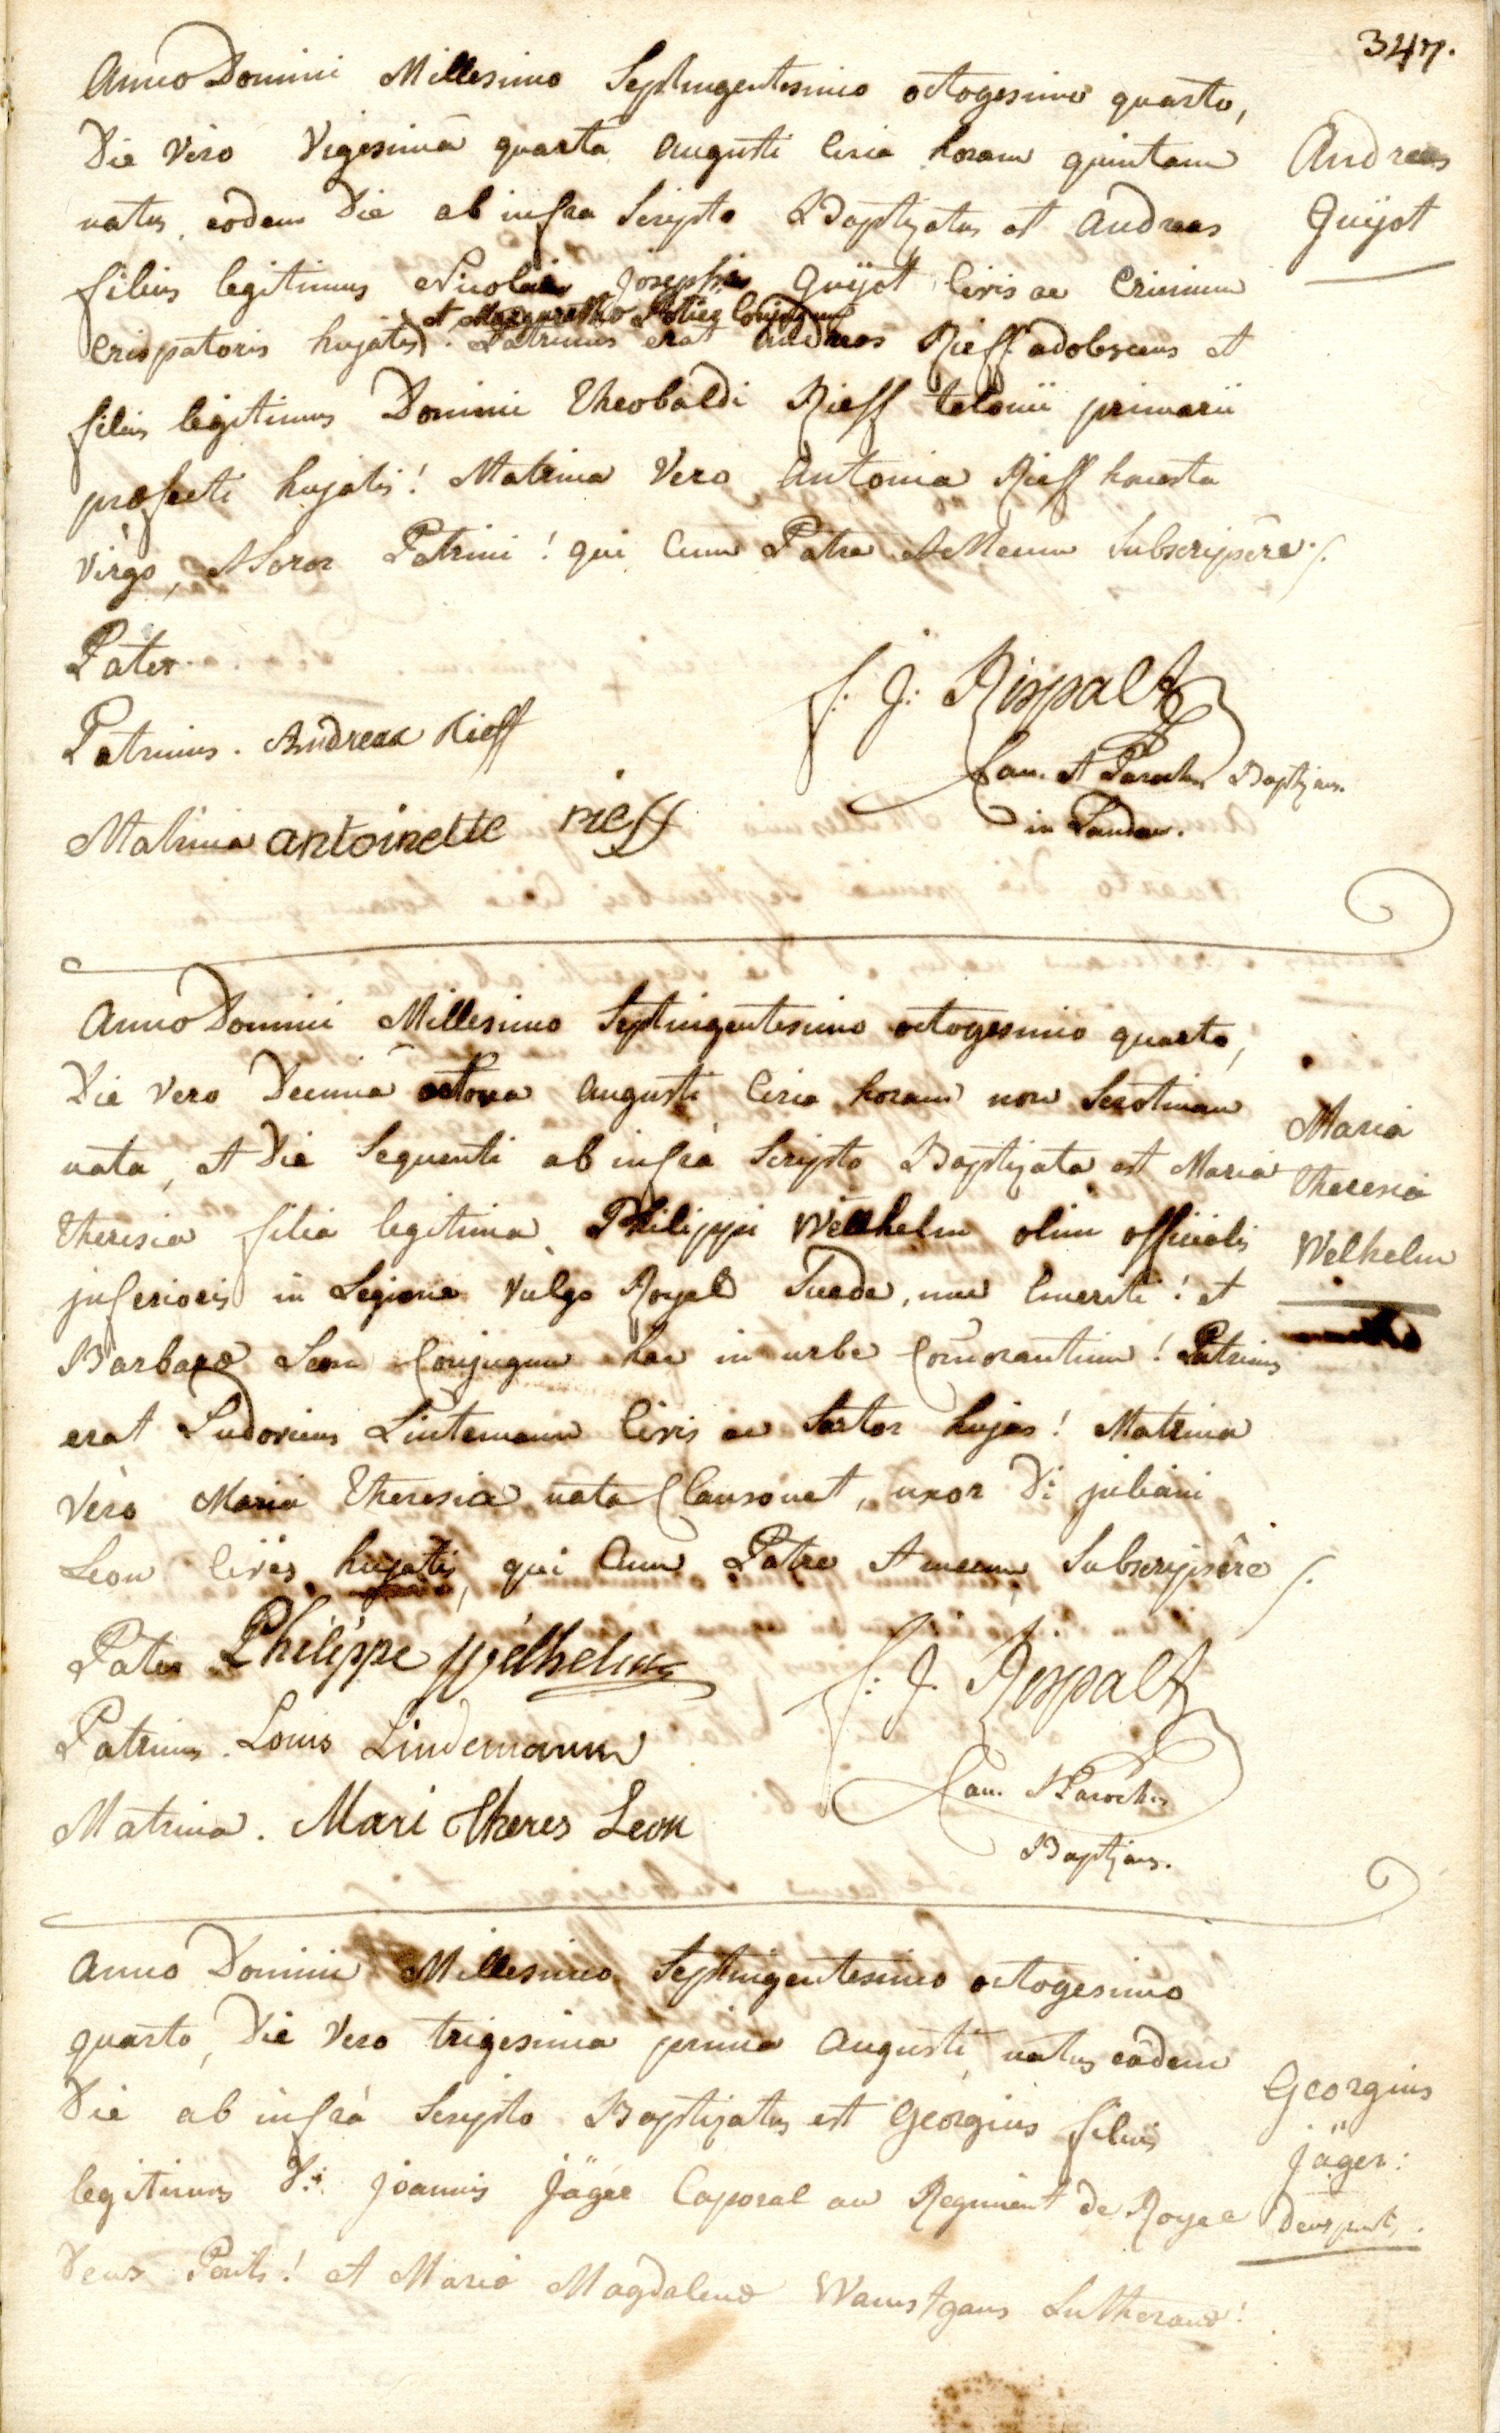 347.
Anno Domini Millesimo Septingentesimo octogesimo quarto,
Die Vero Vigesima quarta augusti circa horam quintam
natus, eodem Die ab infra Scripto Baptizatus est Andreas
filius legitimus Nicolai Josephi Guÿot Civis ac Crinium
et Margarethæ Conjugum
Crispatoris hujatis. Patrinus erat Andreas Rieff adolescens et
filius legitimus Domini Theobaldi Rieff telonii primarii
præfecti hujatis! Matrina Vero Antonia Rieff honesta
Virgo, et Soror Patrini! qui Cum Patre et Mecum Subscripsêre
Andreas
Guÿot
Pater
Patrinus. Andreas Rieff
Matrina antoinette rieff
f. J: Rispalt
Can. et Parochus Baptizans.
in Landau.
Anno Domini Millesimo Septingentesimo octogesimo quarto,
Die Vero Decima octava augusti Circa horam nonam Serotinam
nata, et Die Sequenti ab infrà Scripto Baptizata est Maria
Theresia filia legitima Philippi Wellhelm olim officialis
inferioris in Legione Vulgo Royal Suede, nunc Emeriti! et
Barbaræ Leon Conjugum hac in urbe Com̄orantium! Patrinus
erat Ludovicus Lintemann Civis ac Sartor hujas! Matrina
Vèro Maria Theresia nata Clausonet, uxor D: juliani
Leon Civis hujatis, qui Cum Patre et mecum Subscripsêre
Maria
Theresia
Welhelm
Pater Philippe Wélhelm
Patrinus. Louis Lindemann
Matrina. Mari Theres Leon
f: J. Rispalt
Can. et Parochus
Baptizans.
Anno Domini Millesimo Septingentesimo octogesimo
quarto, Die Vero trigesima prima Augusti, natus eâdem
Die ab infrà Scripto Baptizatus est Georgius filius
legitimus D: Joannis Jäger Caporal au Regiment de Royal
Deux Ponts! et Maria Magdalenæ Lutheranæ!
Georgius
jäger:
deuxponts.